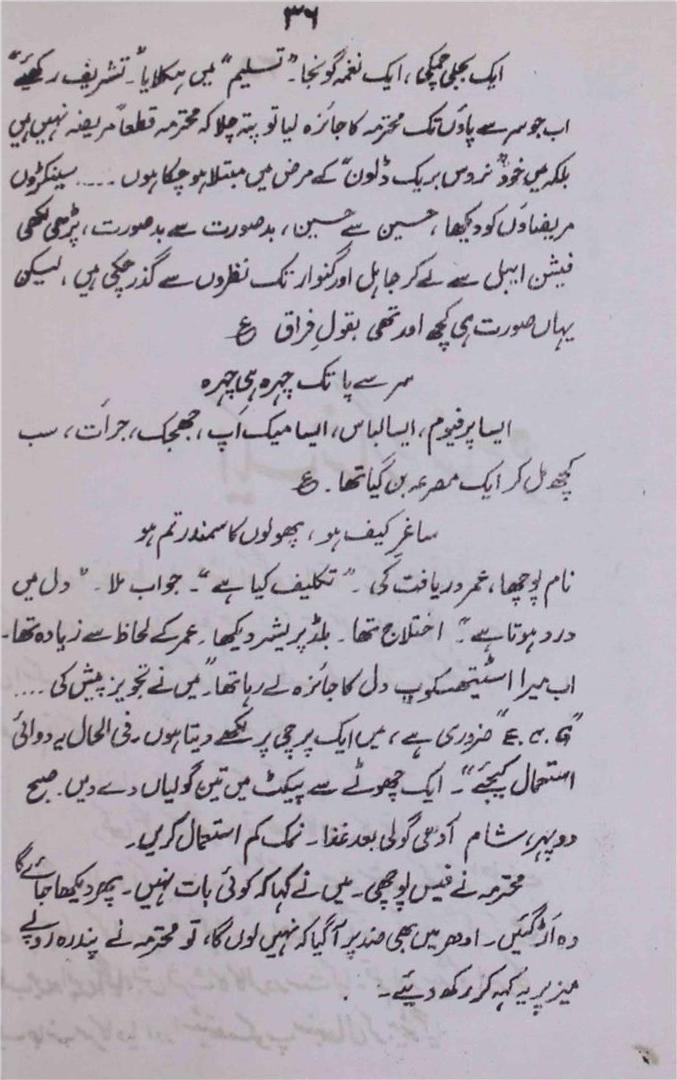 ۳۶
ایک بجلی چمکی، ایک نغمہ گونجا۔ "تسلیم" میں ہکلایا۔ "تشریف رکھئے"
اب جو سر سے پاؤں تک محترمہ کا جائزہ لیا تو پتہ چلا کہ محترمہ قطعاً مریضہ نہیں ہیں
بلکہ میں خود "نروس بریک ڈاون" کے مرض میں مبتلا ہو چکا ہوں .... سینکڑوں
مریضاؤں کو دیکھا، حسین سے حسین، بدصورت سے بدصورت، پڑھی لکھی
فیشن ایبل سے لے کر جاہل اور گنوار تک نظروں سے گذر چکی ہیں، لیکن
یہاں صورت ہی کچھ اور تھی بقول فراق ؏
سر سے پا تک چہرہ ہی چہرہ
ایسا پرفیوم، ایسا لباس، ایسا میک اَپ، جھجک، جرأت، سب
کچھ مل کر ایک مصرعہ بن گیا تھا۔ ؏
ساغرِ کیف ہو، پھولوں کا سمندر تم ہو
نام پوچھا، عمر دریافت کی۔ "تکلیف کیا ہے"۔ جواب ملا۔ "دل میں
درد ہوتا ہے"۔ اختلاج تھا۔ بلڈ پریشر دیکھا۔ عمر کے لحاظ سے زیادہ تھا۔
اب میرا اسٹیتھسکوپ دل کا جائزہ لے رہا تھا۔ میں نے تجویز پیش کی ....
"E.C.G" ضروری ہے، میں ایک پرچی پر لکھے دیتا ہوں۔ فی الحال یہ دوائی
استعمال کیجئے"۔ ایک چھوٹے سے پیکٹ میں تین گولیاں دے دیں۔ صبح
دوپہر، شام آدھی گولی بعد غذا۔ نمک کم استعمال کریں۔
محترمہ نے فیس پوچھی۔ میں نے کہا کہ کوئی بات نہیں۔ پھر دیکھا جائے گا
وہ اَڑ گئیں۔ ادھر میں بھی ضد پر آ گیا کہ نہیں لوں گا، تو محترمہ نے پندرہ روپے
میز پر یہ کہہ کر رکھ دیئے۔